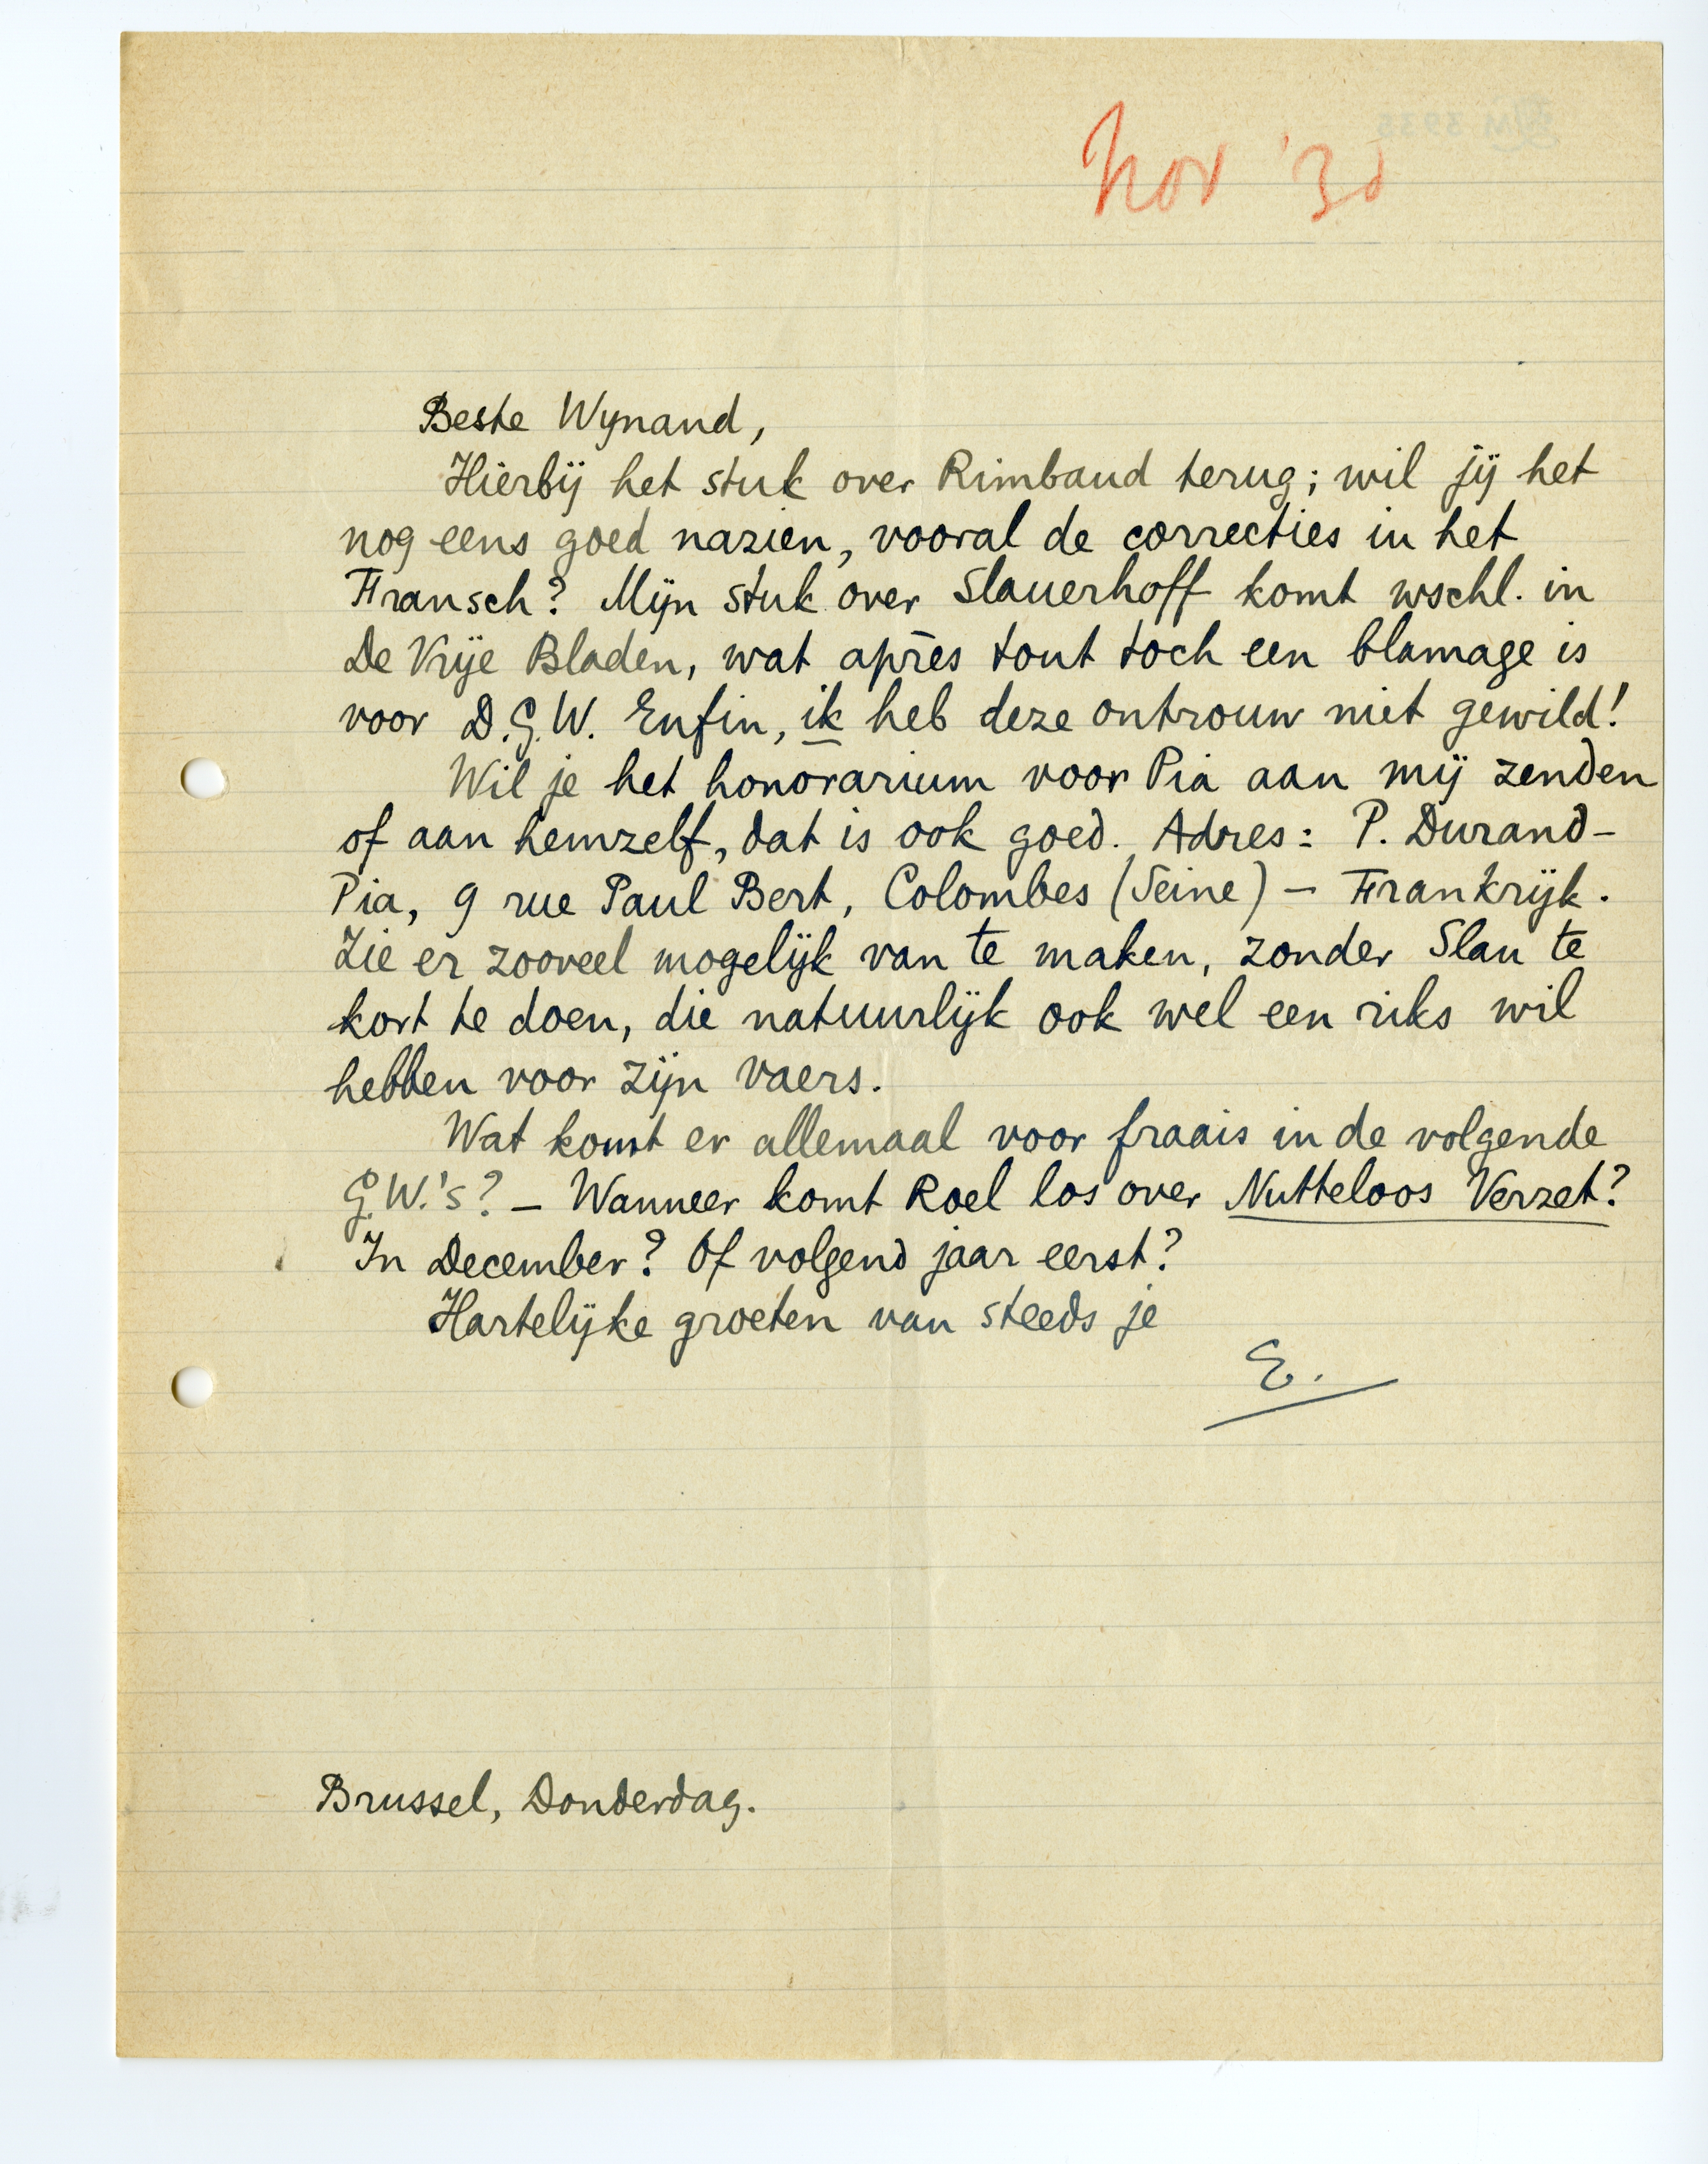 Nov '30
Beste Wynand,
Hierbij het stuk over Rimbaud terug; wil jij het
nog eens goed nazien, vooral de correcties in het
Fransch? Mijn stuk over Slauerhoff komt wschl. in
De Vrije Bladen, wat après tout toch een blamage is
voor D.G.W. Enfin, ik heb deze ontrouw niet gewild!
Wil je het honorarium voor Pia aan mij zenden
of aan hemzelf, dat is ook goed. Adres: P. Durand-
Pia, 9 rue Paul Bert, Colombes (Seine) – Frankrijk.
Zie er zooveel mogelijk van te maken, zonder Slau te
kort te doen, die natuurlijk ook wel een riks wil
hebben voor zijn vaers.
Wat komt er allemaal voor fraais in de volgende
G.W.'s? – Wanneer komt Roel los over Nutteloos Verzet?
In December? Of volgend jaar eerst?
Hartelijke groeten van steeds je
E.
Brussel, Donderdag.